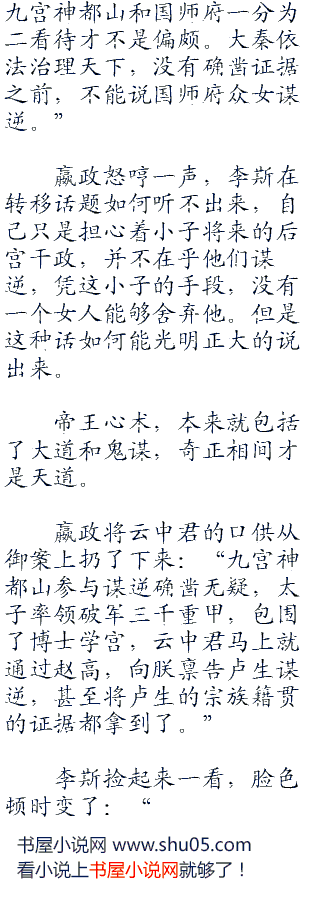 九宫神都山和国师府一分为
二看待才不是偏颇。大秦依
法治理天下，没有确凿证据
之前，不能说国师府众女谋
逆。”
嬴政怒哼一声，李斯在
转移话题如何听不出来，自
己只是担心着小子将来的后
宫干政，并不在乎他们谋
逆，凭这小子的手段，没有
一个女人能够舍弃他。但是
这种话如何能光明正大的说
出来。
帝王心术，本来就包括
了大道和鬼谋，奇正相间才
是天道。
嬴政将云中君的口供从
御案上扔了下来：“九宫神
都山参与谋逆确凿无疑，太
子率领破军三千重甲，包围
了博士学宫，云中君马上就
通过赵高，向朕禀告卢生谋
逆，甚至将卢生的宗族籍贯
的证据都拿到了。”
李斯捡起来一看，脸色
顿时变了：“
书屋小说网 www.shu05.com
看小说上书屋小说网就够了！